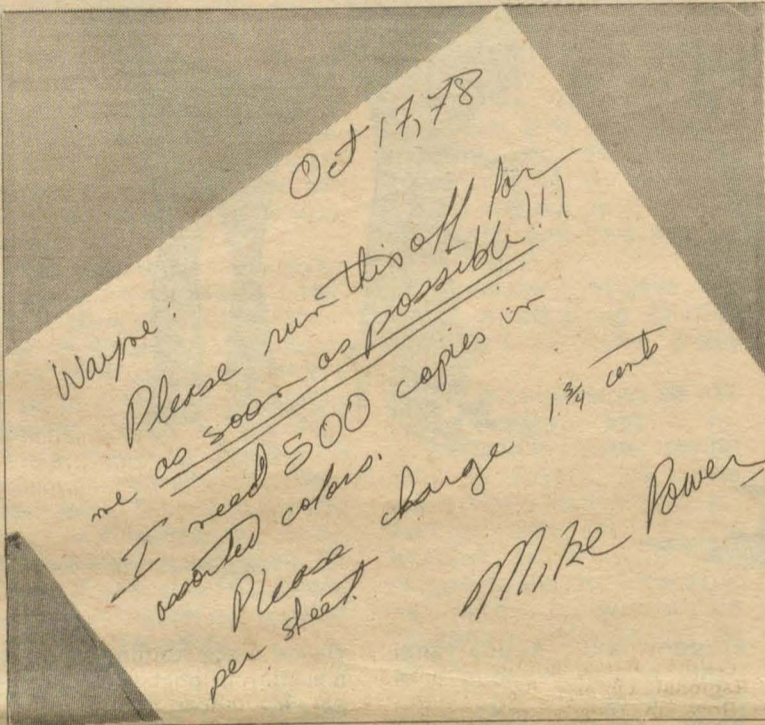 Oct 17, 78
Wayne:
Please run this off for
me as soon as possible!!!
I need 500 copies in
assorted colors.
Please charge 1 3/4 cents
per sheet.
Mike Power